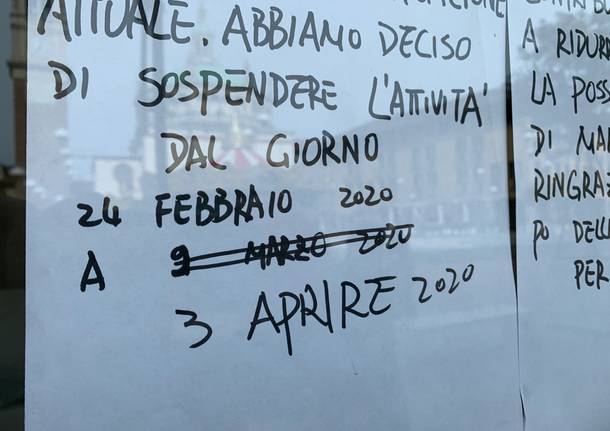 ATTUALE. ABBIAMO DECISO
DI SOSPENDERE L'ATTIVITA'
DAL GIORNO
24 FEBBRAIO 2020
A 9 MARZO 2020
3 APRIRE 2020
A RIDUR
LA POSS
DI MA
RINGRAZ
PO DELL
PER